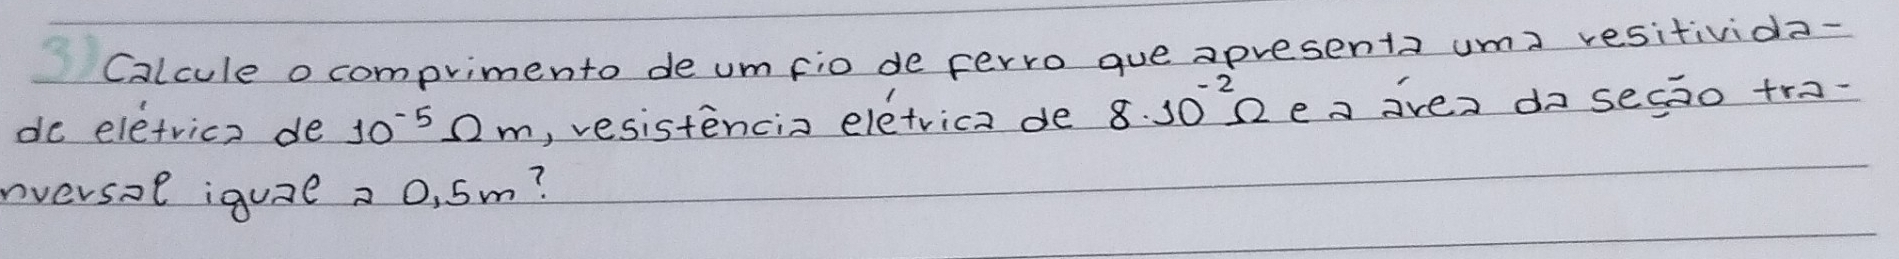 3) Calcule o comprimento de um fio de ferro que apresenta uma resitivida-
de elétrica de 10⁻⁵ Ωm, resistência elétrica de 8.10⁻² Ω e a área da seção tra-
nversal igual a 0,5m?